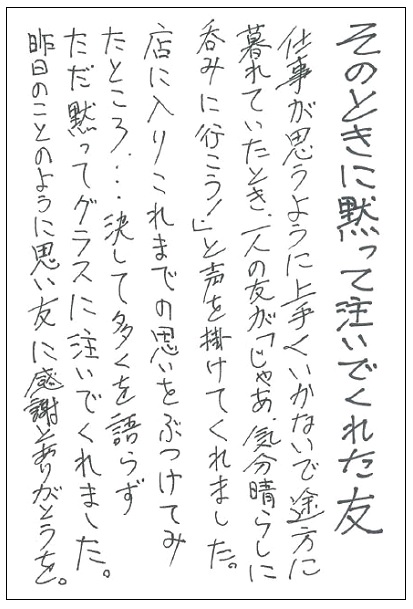 そのときに黙って注いでくれた友
仕事が思うように上手くいかないで途方に
暮れていたとき、一人の友が「じゃあ、気分晴らしに
呑みに行こう！」と声を掛けてくれました。
店に入りこれまでの思いをぶつけてみ
たところ…決して多くを語らず
ただ黙ってグラスに注いでくれました。
昨日のことのように思い友に感謝とありがとうを。